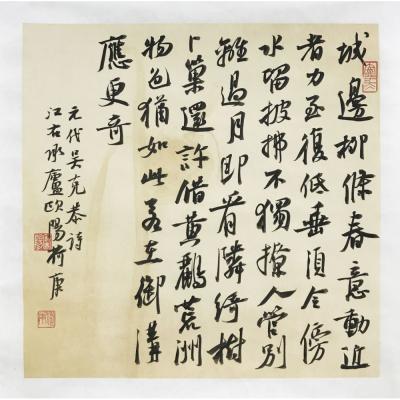 城邊柳條春意動近
者力至復低垂須令傍
水留披拂不獨撩人管別
離過月即看隣綺樹
卜巢還許借黃鸝荒洲
物色猶如此若在御溝
應更奇
元代吳克恭詩
江右承廬歐陽荷庚